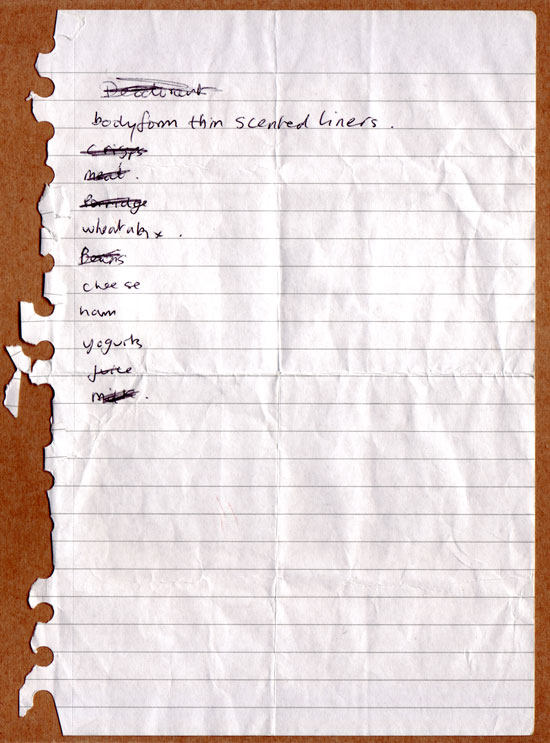 bodyform thin scented liners .
crisps
meat .
porridge
wheatabx .
Beans
cheese
ham
yogurts
juice
milk .